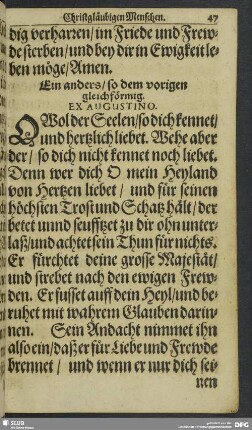 Christgläubigen Menschen. 47
dig verharren / im Friede und Frew-
de sterben / und bey dir in Ewigkeit le-
ben möge / Amen.
Ein anders / so dem vorigen
gleichförmig.
EX AUGUSTINO.
O Wol der Seelen / so dich kennet /
und hertzlich liebet. Wehe aber
der / so dich nicht kennet noch liebet.
Denn wer dich O mein Heyland
von Hertzen liebet / und für seinen
höchsten Trost und Schatz hält / der
betet unnd seufftzet zu dir ohn unter-
laß / und achtet sein Thun für nichts.
Er fürchtet deine grosse Majestät /
und strebet nach den ewigen Frew-
den. Er fusset auff dein Heyl / und be-
ruhet mit wahrem Glauben darin-
nen. Sein Andacht nimmet ihn
also ein / daß er für Liebe und Frewde
brennet / und wenn er nur dich sei-
nen
SLUB